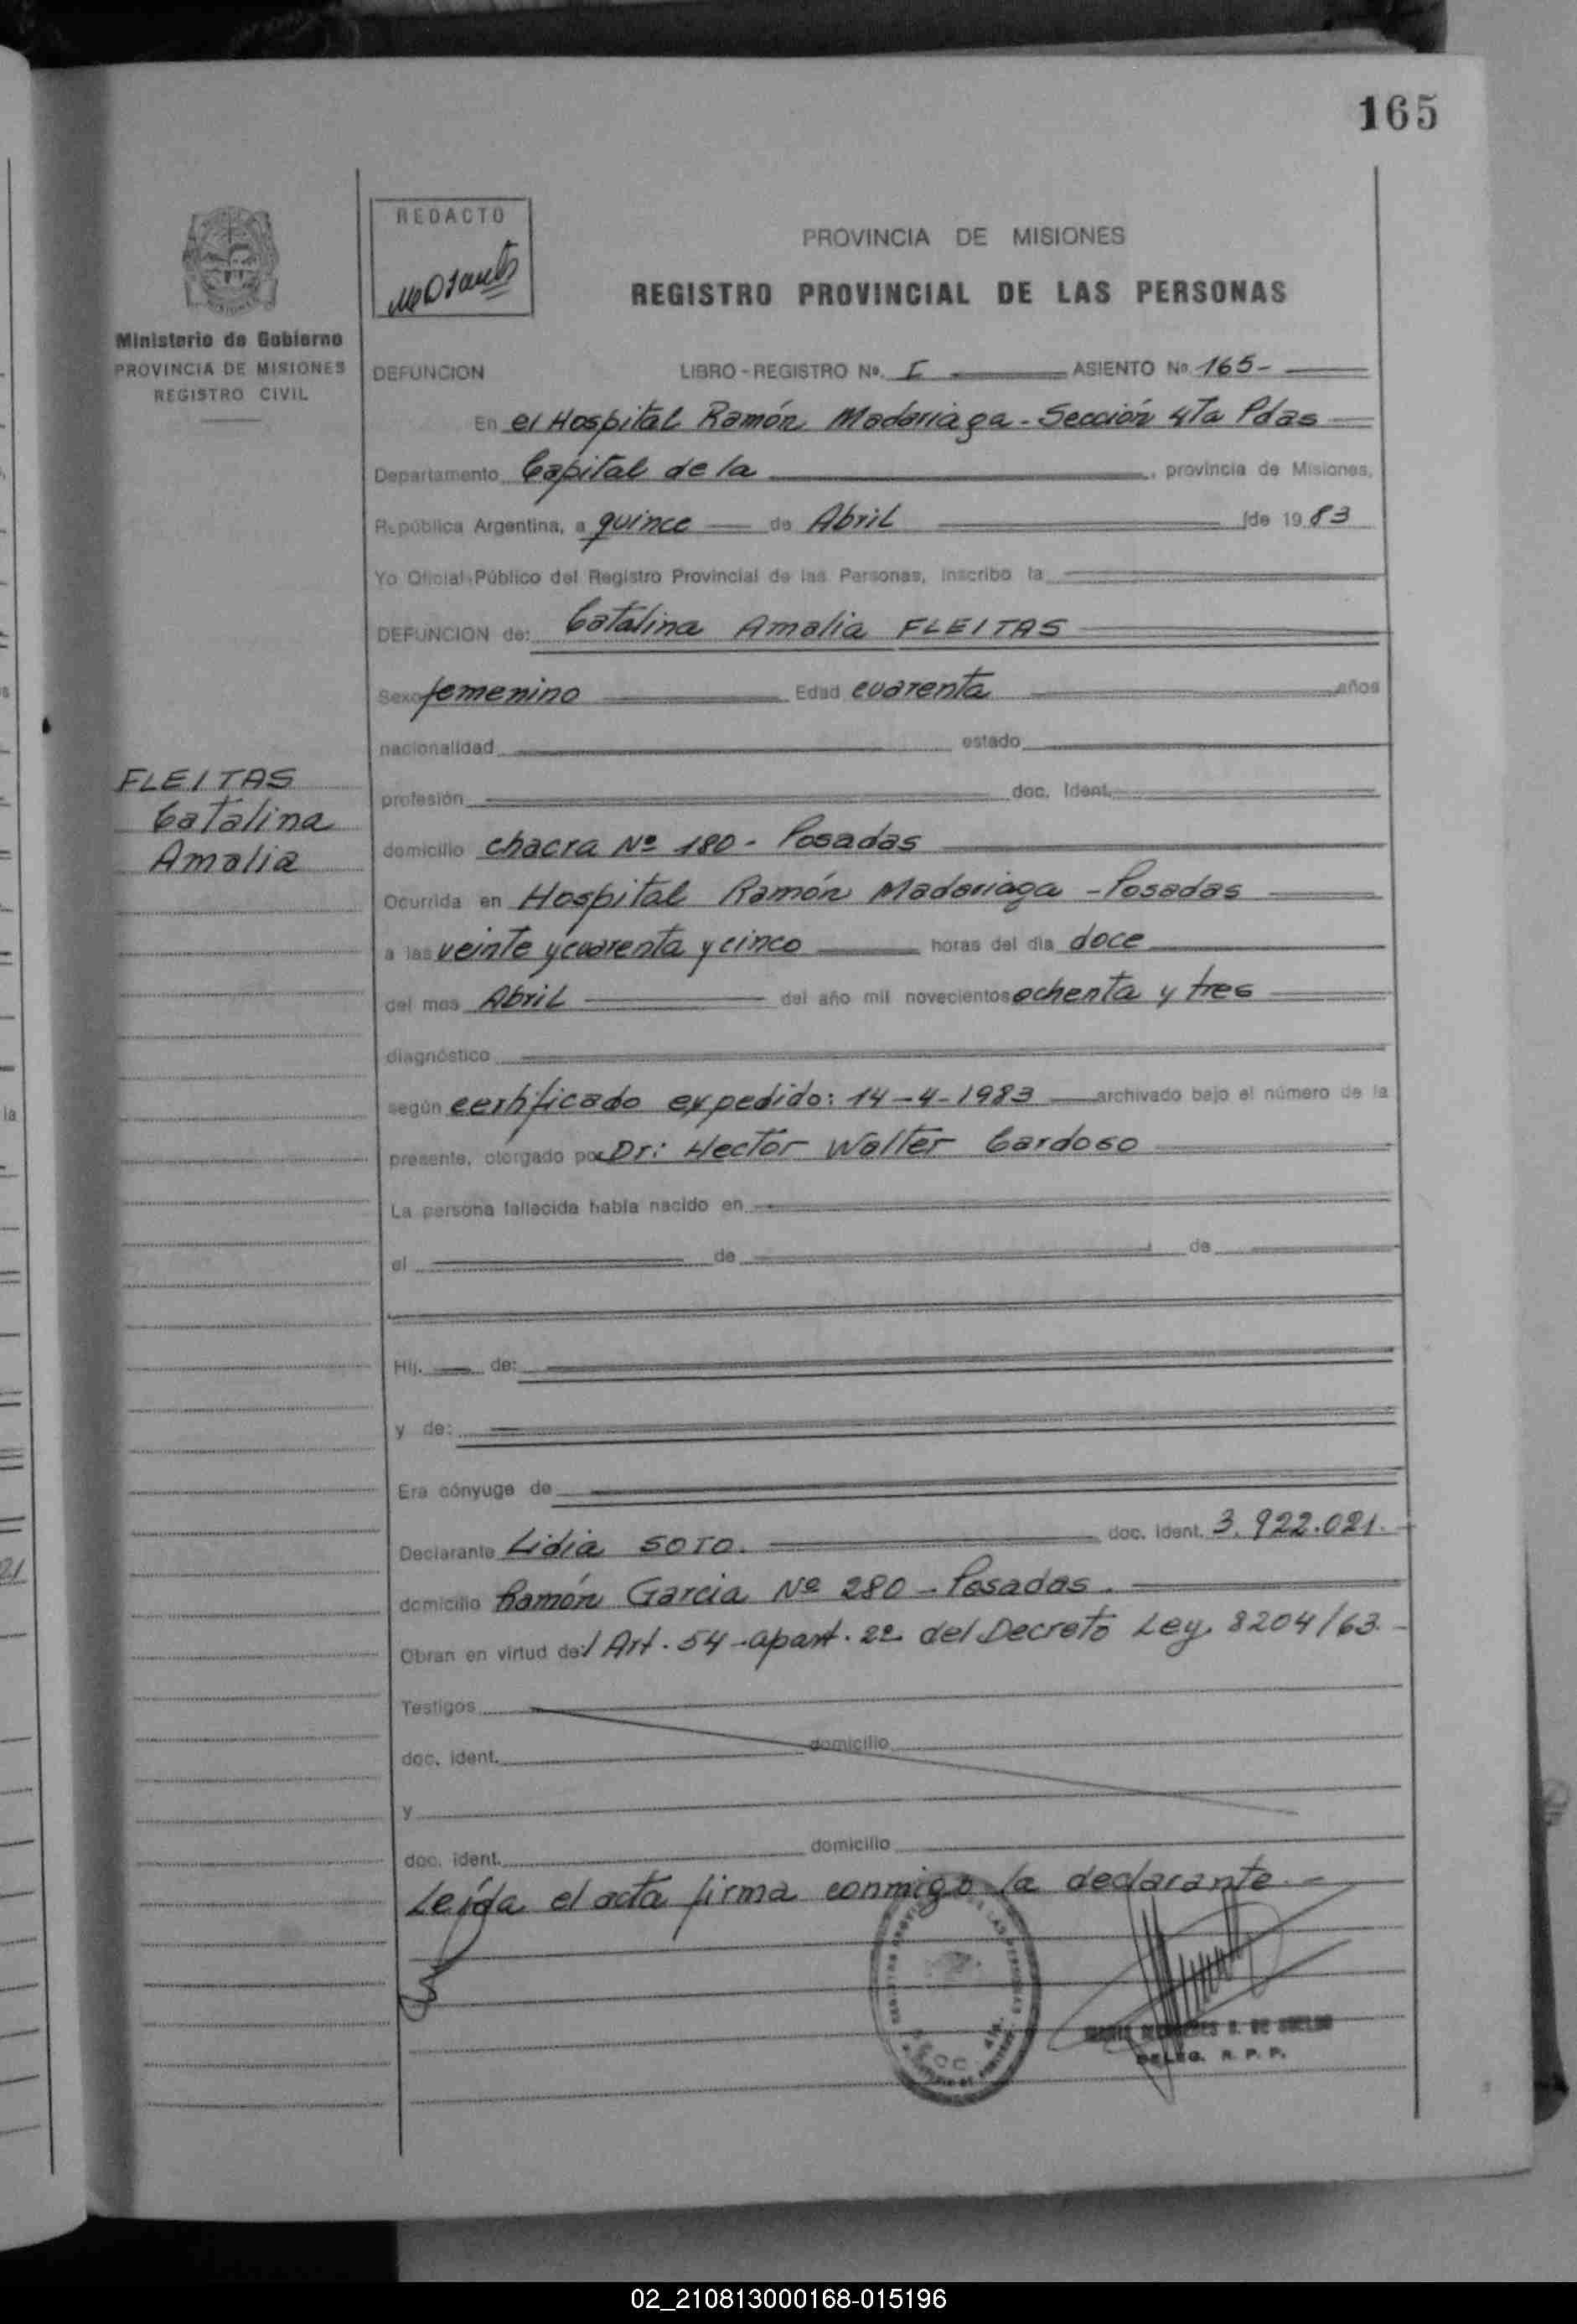 165
REDACTO
PROVINCIA DE MISIONES
REGISTRO PROVINCIAL DE LAS PERSONAS
Ministerio de Gobierno
PROVINCIA DE MISIONES
REGISTRO CIVIL
DEFUNCION LIBRO-REGISTRO Nº. I ASIENTO Nº 165-
En el Hospital Ramón Madariaga - Sección 4Ta Pdas
Departamento Capital de la , provincia de Misiones,
República Argentina, a quince de Abril de 1983
Yo Oficial Público del Registro Provincial de las Personas, inscribo la
DEFUNCION de: Catalina Amalia FLEITAS
Sexo femenino Edad cuarenta años
nacionalidad estado
FLEITAS
Catalina
Amalia
profesión doc. Ident.
domicilio chacra Nº 180 - Posadas
Ocurrida en Hospital Ramón Madariaga - Posadas
a las veinte y cuarenta y cinco horas del día doce
del mes Abril del año mil novecientos ochenta y tres
diagnóstico
según certificado expedido: 14-4-1983 archivado bajo el número de la
presente, otorgado por Dr: Hector Walter Cardoso
La persona fallecida había nacido en
el de de
Hij. de:
y de:
Era cónyuge de
Declarante Lidia SOTO. doc. ident. 3.922.021.
domicilio Ramón Garcia Nº 280 - Posadas.
Obran en virtud del Art. 54 - apart. 2º del Decreto Ley 8204/63.-
Testigos
doc. ident. domicilio
y
doc. ident. domicilio
Leída el acta firma conmigo la declarante.-
DELEG. R. P. P.
21
la
02_210813000168-015196